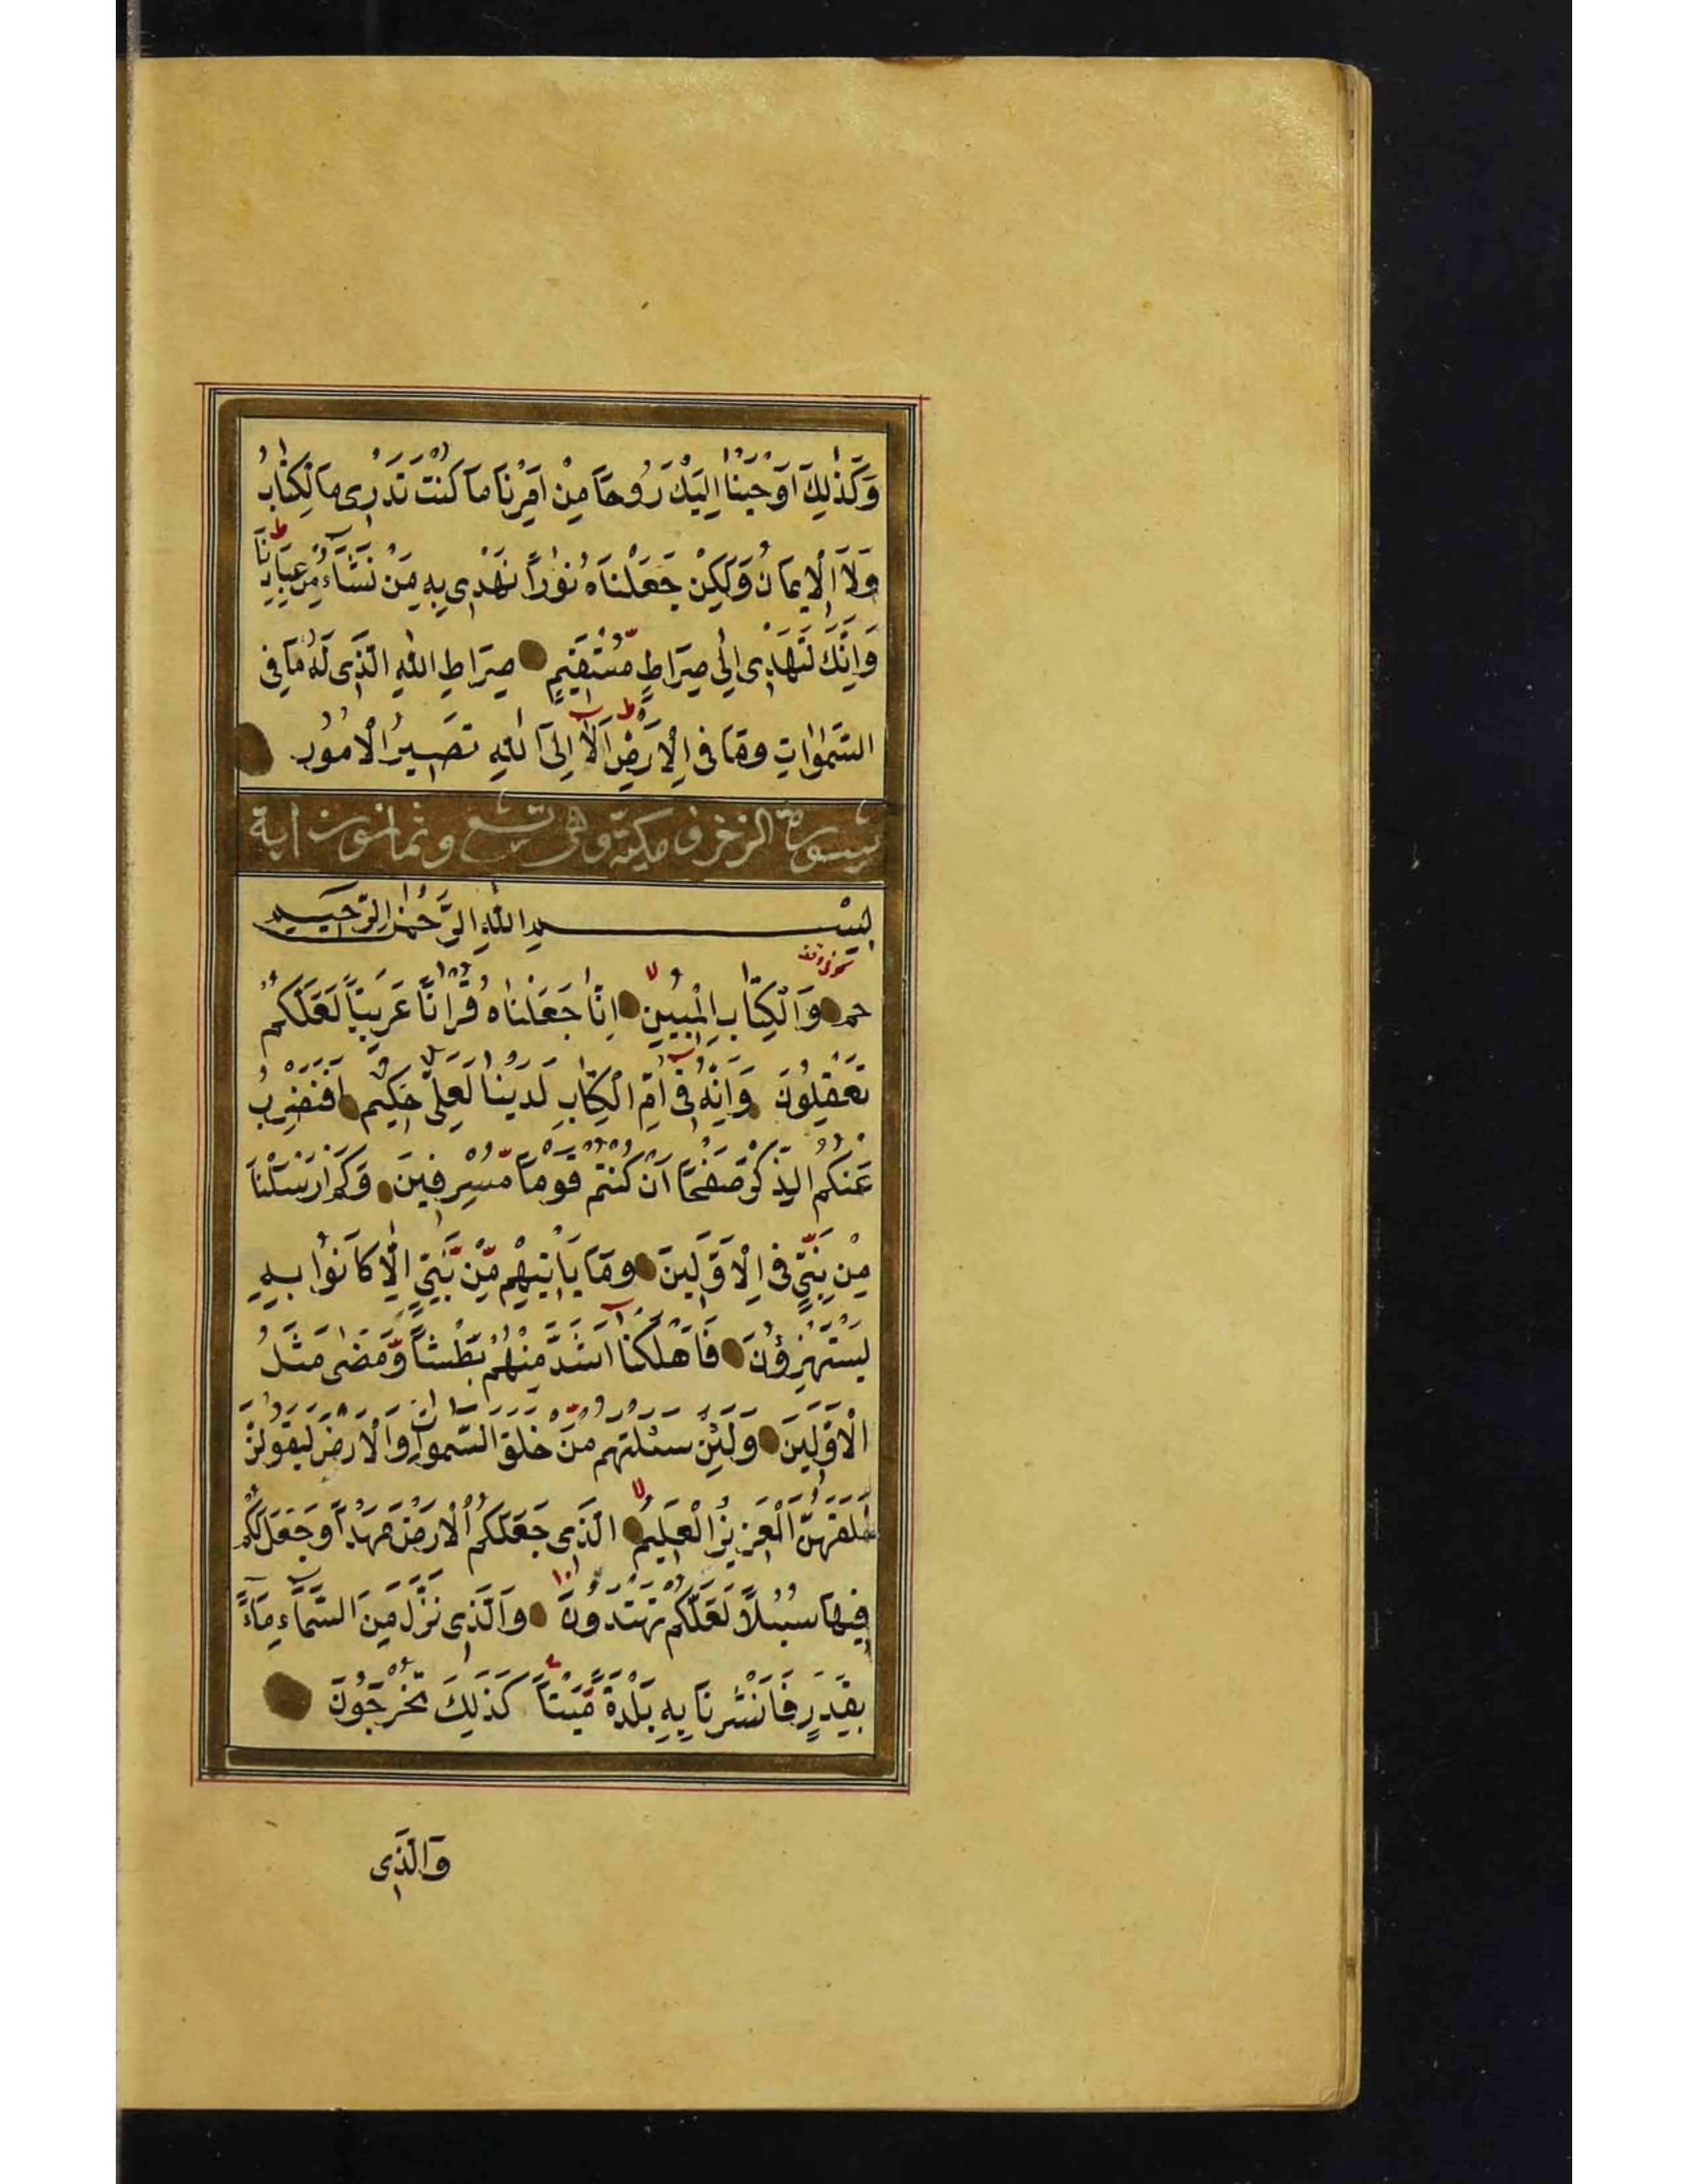 وَكَذٰلِكَ اَوْحَيْنَا اِلَيْكَ رُوحًا مِنْ اَمْرِنَا مَا كُنْتَ تَدْرِى مَا الْكِتَابُ
وَلَا الْاِيمَانُ وَلٰكِنْ جَعَلْنَاهُ نُوراً نَهْدِى بِهِ مَنْ نَشَآءُ مِنْ عِبَادِنَا ط
وَاِنَّكَ لَتَهْدِى اِلٰى صِرَاطٍ مُسْتَقِيمٍ صِرَاطِ اللّٰهِ الَّذِى لَهُ مَا فِى
السَّمٰوَاتِ وَمَا فِى الْاَرْضِ ط اَلَآ اِلَى اللّٰهِ تَصِيرُ الْاُمُورُ
سورة الزخرف مكيّة وهى تسع وثمانون اية
بِسْمِ اللّٰهِ الرَّحْمٰنِ الرَّحِيمِ
حم وَالْكِتَابِ الْمُبِينِ لا اِنَّا جَعَلْنَاهُ قُرْاٰنًا عَرَبِيًّا لَعَلَّكُمْ
تَعْقِلُونَ وَاِنَّهُ فِىٓ اُمِّ الْكِتَابِ لَدَيْنَا لَعَلِىٌّ حَكِيمٌ اَفَنَضْرِبُ
عَنْكُمُ الذِّكْرَ صَفْحًا اَنْ كُنْتُمْ قَوْمًا مُّسْرِفِينَ وَكَمْ اَرْسَلْنَا
مِنْ نَبِىٍّ فِى الْاَوَّلِينَ وَمَا يَاْتِيهِمْ مِّنْ نَّبِىٍّ اِلَّا كَانُوا بِهِ
يَسْتَهْزِؤُنَ فَاَهْلَكْنَآ اَشَدَّ مِنْهُمْ بَطْشًا وَّمَضٰى مَثَلُ
الْاَوَّلِينَ وَلَئِنْ سَئَلْتَهُمْ مَّنْ خَلَقَ السَّمٰوَاتِ وَالْاَرْضَ لَيَقُولُنَّ
خَلَقَهُنَّ الْعَزِيزُ الْعَلِيمُ لا الَّذِى جَعَلَ لَكُمُ الْاَرْضَ مَهْداً وَجَعَلَ لَكُمْ
فِيهَا سُبُلًا لَعَلَّكُمْ تَهْتَدُونَ وَالَّذِى نَزَّلَ مِنَ السَّمَآءِ مَآءً
بِقَدَرٍ فَاَنْشَرْنَا بِهِ بَلْدَةً مَّيْتًا كَذٰلِكَ تُخْرَجُونَ
وَالَّذِى